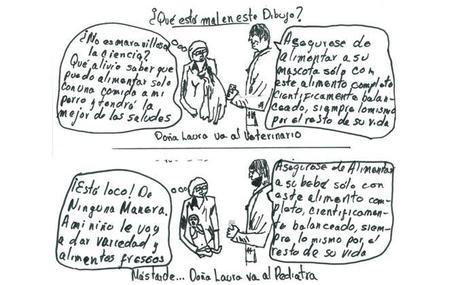 ¿Qué está mal en este Dibujo?
¿No es maravillosa
la ciencia?
Qué alivio saber que
puedo alimentar solo
con una comida a mi
perro y tendrá la
mejor de las saludes
Asegúrese de
alimentar a su
mascota sólo con
este alimento completo
científicamente balan-
ceado, siempre lo mismo
por el resto de su vida
Doña Laura va al Veterinario
¡Está loco! De
Ninguna Manera.
A mi niño le voy
a dar variedad y
alimentos frescos
Asegúrese de Alimentar
a su bebé solo con
este alimento com-
pleto, científicamen-
te balanceado, siem-
pre, lo mismo por el
resto de su vida
Más tarde... Doña Laura va al Pediatra